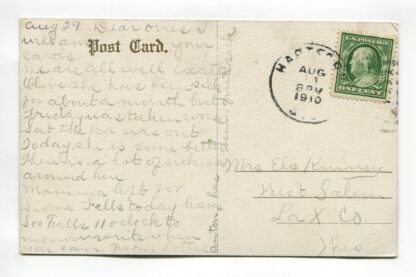 Aug 29 Dear ones I
your
Post Card.
cards
We are all well except
Olive she has been sick
for about a month but
Friday was taken worse
Sat the Dr was out
Today she is some better
There is a lot of sickness
around here
Mamma left for
Sioux Falls today leave
Soo Falls 11 oclock to
morrow write when
you can
Anton has been quite sick
HARTFORD
AUG
8 PM
1910
U.S. POSTAGE
ONE CENT
Mrs Els Kenney
West Salem
La X Co.
Wis